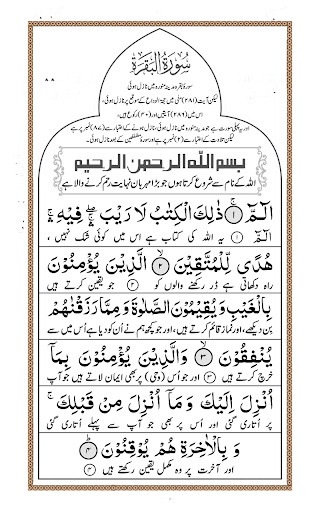 سُوْرَةُ الْبَقَرَةِ
سورۂ بقرہ مدینہ منورہ میں نازل ہوئی
لیکن آیت (۲۸۱) منیٰ میں حجۃ الوداع کے موقع پر نازل ہوئی،
اس میں (۲۸۶) آیتیں اور (۴۰) رکوع ہیں،
بِسْمِ اللّٰهِ الرَّحْمٰنِ الرَّحِيْمِ
اللہ کے نام سے شروع کرتا ہوں جو بڑا مہربان نہایت رحم کرنے والا ہے
الٓمّٓ ۚ ۝١ ذٰلِكَ الْكِتٰبُ لَا رَيْبَ ۛۚ فِيْهِ ۛۚ
الٓمّٓ ۝١ یہ اللہ کی کتاب ہے اس میں کوئی شک نہیں ،
هُدًى لِّلْمُتَّقِيْنَ ۙ ۝٢ الَّذِيْنَ يُؤْمِنُوْنَ
راہ دکھاتی ہے ڈر رکھنے والوں کو ۝٢ جو یقین کرتے ہیں
بِالْغَيْبِ وَيُقِيْمُوْنَ الصَّلٰوةَ وَمِمَّا رَزَقْنٰهُمْ
بن دیکھے، اور نماز قائم کرتے ہیں، اور جو کچھ ہم نے اُن کو دیا ہے اُس میں سے
يُنْفِقُوْنَ ۙ ۝٣ وَالَّذِيْنَ يُؤْمِنُوْنَ بِمَاۤ
خرچ کرتے ہیں ۝٣ اور جو اُس (وحی) پر بھی ایمان لاتے ہیں جو آپ
اُنْزِلَ اِلَيْكَ وَمَاۤ اُنْزِلَ مِنْ قَبْلِكَ ۚ
پر اُتاری گئی اور اُس پر بھی جو آپ سے پہلے اُتاری گئی
وَ بِالْاٰخِرَةِ هُمْ يُوْقِنُوْنَ ؕ ۝٤
اور آخرت پر وہ مکمل یقین رکھتے ہیں ۝٤